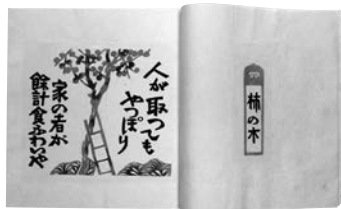 柿の木
人が取つても
やつぱり
家の者が
餘計食ふわいや